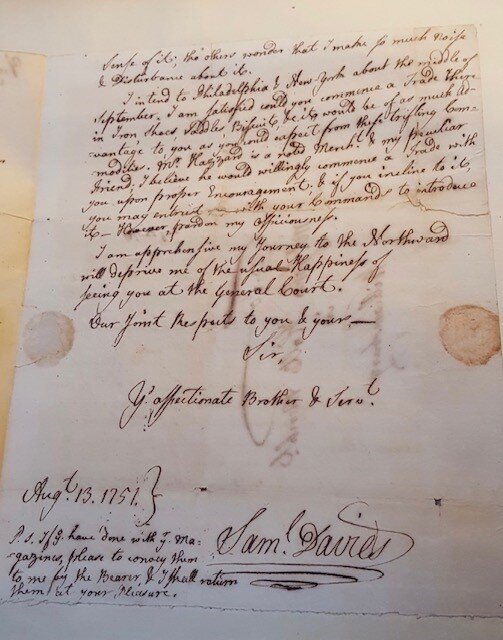 Sense of it; tho' others wonder that I make so much Noise
& Disturbance about it.
I intend to Philadelphia & New-York about the middle of
September. I am satisfied could you commence a Trade there
in Iron Shoes Saddles Biscuits &c it would be of as much ad-
vantage to you as you could expect from these trifling Com-
modities. Mr. Hazzard is a noted Mercht. & my peculiar
Friend; I believe he would willingly commence a Trade with
you upon proper Encouragement; & if you incline to it,
you may entrust me with your Commands to introduce
it – However, pardon my officiousness.
I am apprehensive my Journey to the Northward
will deprive me of the usual Happiness of
seeing you at the General Court.
Our Joint Respects to you & yours —
Sir,
Yr. affectionate Brother & Servt.
Augt. 13. 1751.}
P.S. If y. have done with y. Ma-
gazines, please to convey them
to me by the Bearer, & I shall return
them at your Pleasure.
Saml. Davies